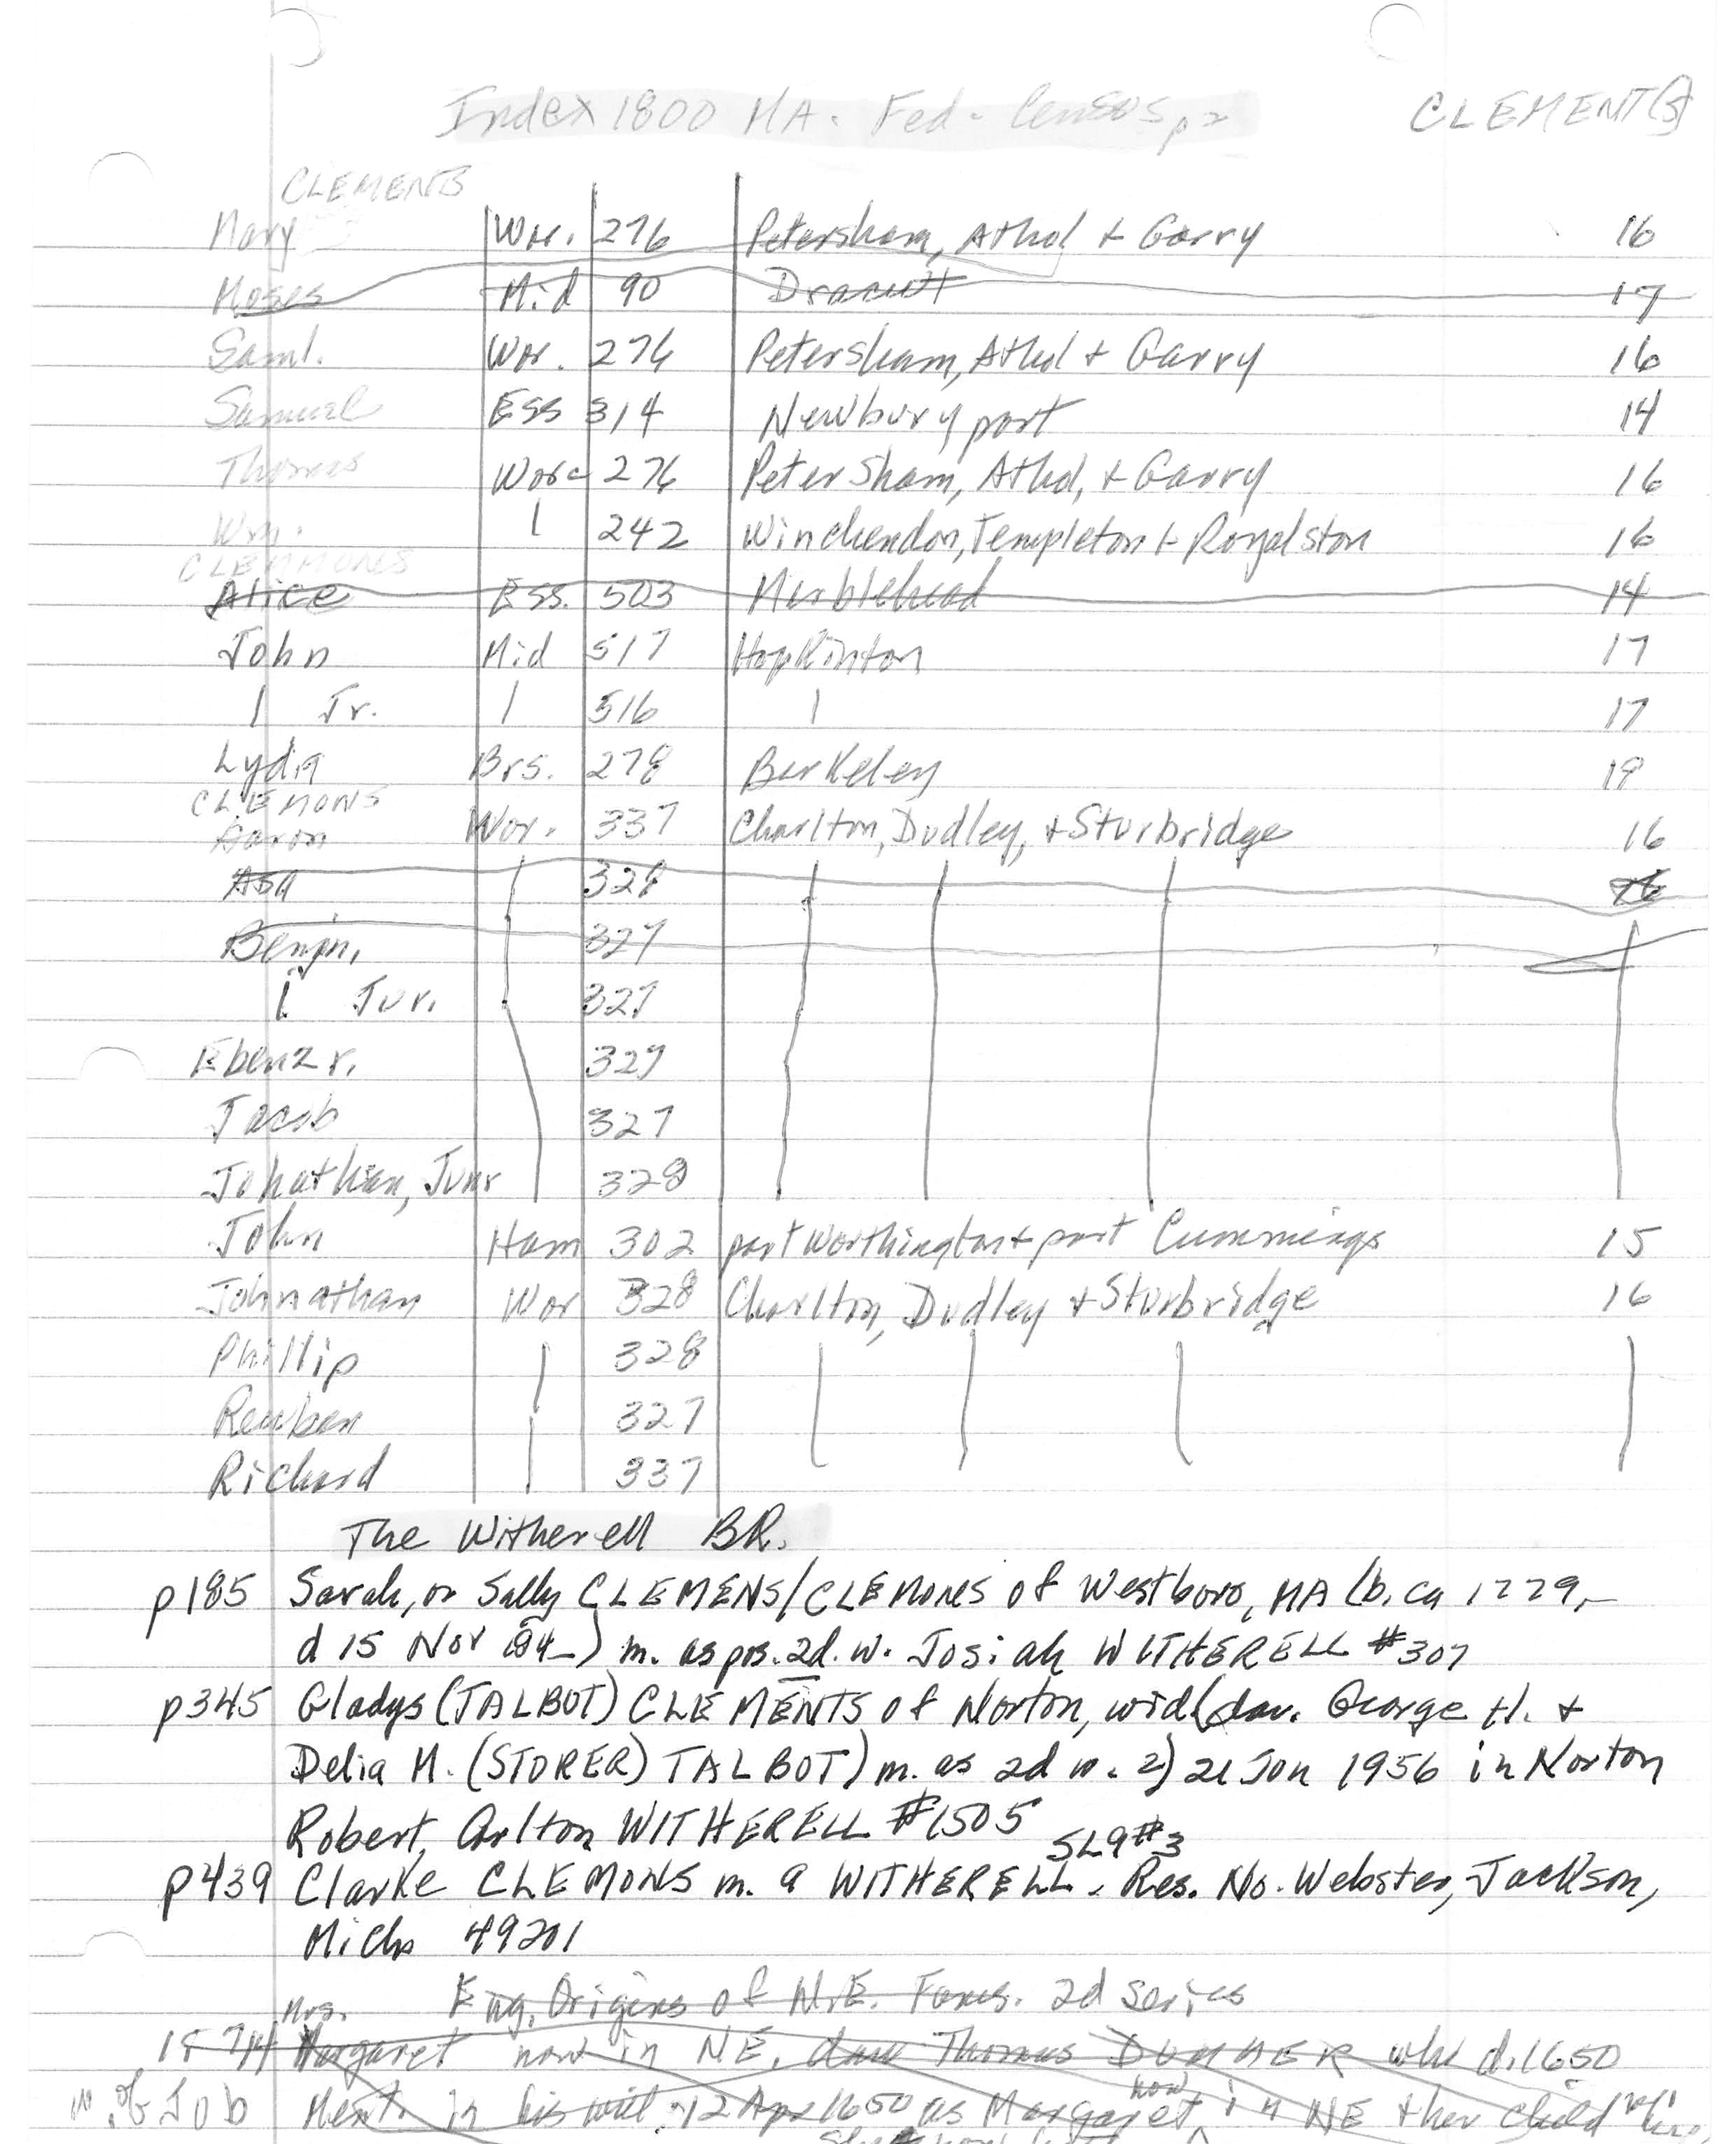 Index 1800 MA. Fed. Census p2 CLEMENT(S)
CLEMENTS
Mary Wor. 276 Petersham, Athol + Garry 16
Moses Mid 90 Dracutt 17
Saml. Wor. 276 Petersham, Athol + Garry 16
Samuel Ess 314 Newbury port 14
Thomas Worc 276 Petersham, Athol, + Garry 16
Wm. | 242 Winchendon, Templeton + Royalston 16
CLEMMONS
Alice Ess. 503 Marblehead 14
John Mid 517 Hopkinton 17
| Jr. | 516 | 17
Lydia Brs. 278 Berkeley 19
CLEMONS
Aaron Wor. 337 Charlton, Dudley, + Sturbridge 16
Asa | 328 | | | 16
Benjn. | 327 | | | |
| Jur. | 327 | | | |
Ebenzr. | 327 | | | |
Jacob | 327 | | | |
Johathan, Junr | 328 | | | |
John Ham 302 part Worthington + part Cummings 15
Johnathan Wor 328 Charlton, Dudley + Sturbridge 16
Phillip | 328 | | | |
Reuben | 327 | | | |
Richard | 337 | | | |
The Witherell BR.
p185 Sarah, or Sally CLEMENS/CLEMONES of Westboro, MA (b. ca 1779,
d 15 Nov 184_) m. as pos. 2d. w. Josiah WITHERELL #307
p345 Gladys (TALBOT) CLEMENTS of Norton, wid (dau. George H. +
Delia M. (STORER) TALBOT) m. as 2d w. 2) 21 Jan 1956 in Norton
Robert Arlton WITHERELL #1505
SL9#3
p439 Clarke CLEMONS m. a WITHERELL. Res. No. Webster, Jackson,
Mich 49201
Eng. Origins of N.E. Fams. 2d series
Mrs.
Margaret now in NE, dau Thomas DUMMER who d. 1650
w. of Job Ment. in his will 12 Apr 1650 as Margaret now in NE + her child